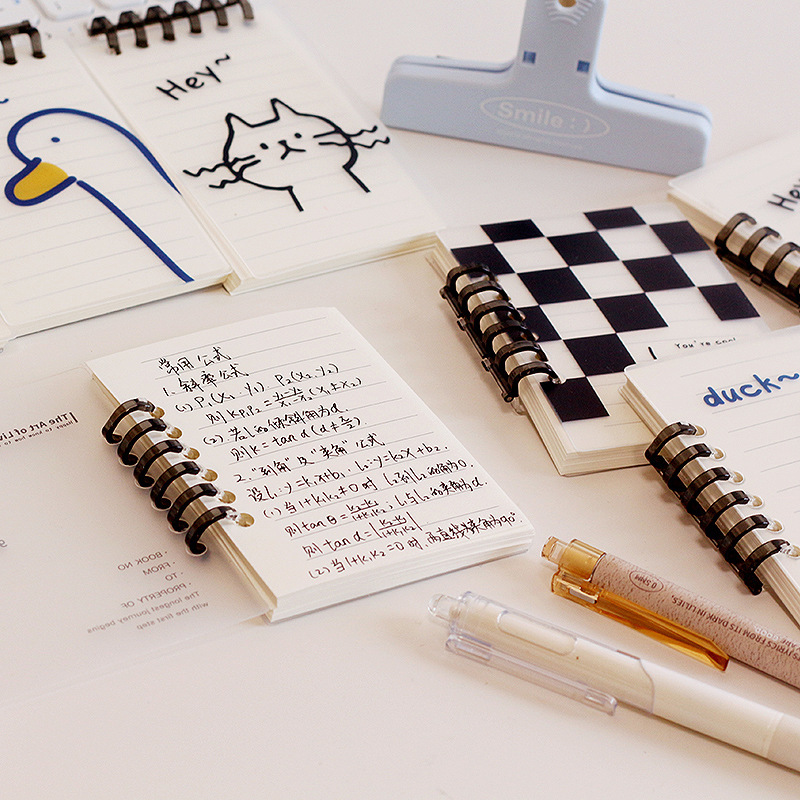 Hey~
Smile:)
常用公式
1. 斜率公式
(1) P₁(x₁, y₁), P₂(x₂, y₂)
则 kP₁P₂ = y₂-y₁/x₂-x₁ (x₁≠x₂)
(2) 若l的倾斜角为α
则k=tanα(α≠π/2)
2. "到角"及"夹角"公式
设l₁:y=k₁x+b₁, l₂:y=k₂x+b₂,
(1) 当1+k₁k₂≠0时 l₁到l₂的角为θ,
则tanθ=k₂-k₁/1+k₁k₂; l₁与l₂的夹角为α,
则tanα=|k₂-k₁/1+k₁k₂|
(2) 当1+k₁k₂=0时,两直线夹角为90°.
You're cool
duck~
The Art of
· BOOK NO
· FROM
· TO
· PROPERTY OF
The longest journey begins
with the first step
0.5MM
LYRICS FROM ITS DARK IN LILIES,